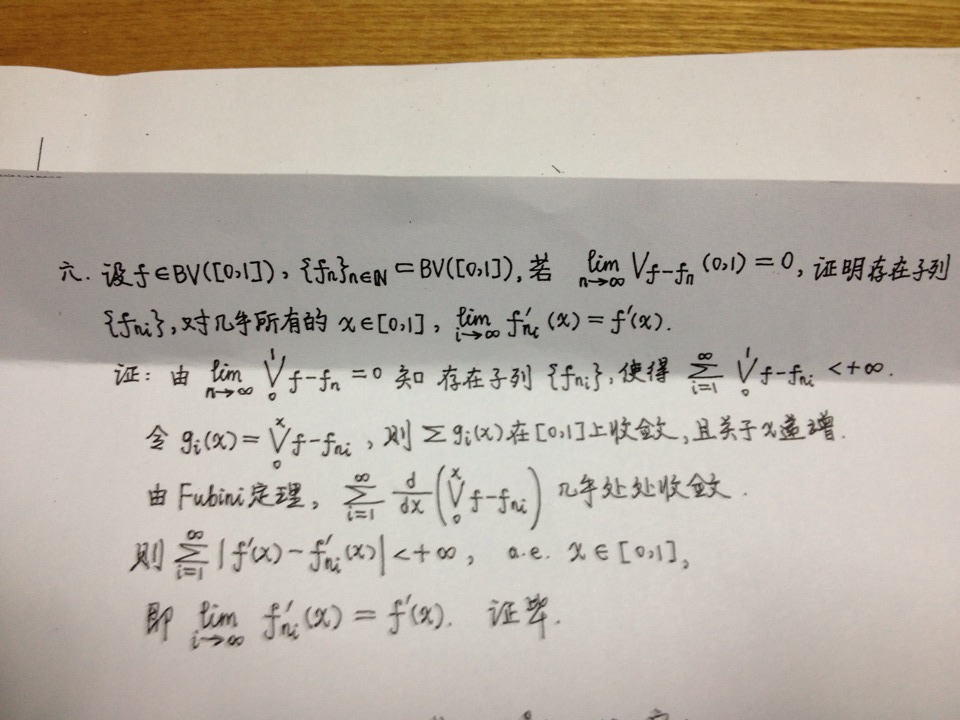 六. 设 f∈BV([0,1]), {fn}n∈ℕ ⊂ BV([0,1]), 若 lim n→∞ V f−fn (0,1) = 0, 证明存在子列
{fni}, 对几乎所有的 x∈[0,1], lim i→∞ f′ni(x) = f′(x).
证: 由 lim n→∞ V₀¹ f−fn = 0 知 存在子列 {fni}, 使得 ∑ i=1 ∞ V₀¹ f−fni < +∞.
令 gi(x) = V₀ˣ f−fni, 则 Σ gi(x) 在 [0,1] 上收敛, 且关于 x 递增.
由 Fubini 定理, ∑ i=1 ∞ d/dx (V₀ˣ f−fni) 几乎处处收敛.
则 ∑ i=1 ∞ |f′(x) − f′ni(x)| < +∞, a.e. x∈[0,1],
即 lim i→∞ f′ni(x) = f′(x). 证毕.